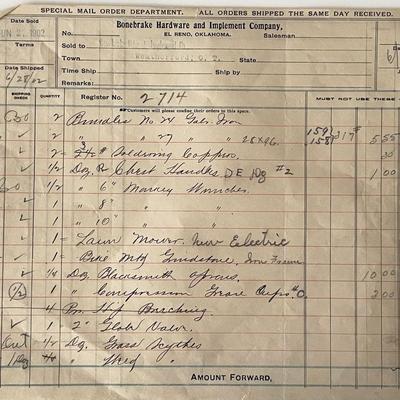 SPECIAL MAIL ORDER DEPARTMENT. ALL ORDERS SHIPPED THE SAME DAY RECEIVED.
Date Sold
Bonebrake Hardware and Implement Company,
JUN 2, 1902
No.
EL RENO, OKLAHOMA.
Salesman
Terms
Sold to
Town Weatherford, O. T. State
Date Shipped
6/28/02
Time Ship Ship by
Remarks:
SHIPPING CHECK
QUANTITY
Register No. 2714
MUST NOT USE THESE
Customers will please confine their orders to this space.
Bo 2 Bundles No. 24 Galv. Iron
2 " " 27 " " 28x96. 159# 158# 317# 5 55
2 Soldering Coppers. 30
✓ 1/2 Dz. Pr Chest Handles DE Dg #2 1 00
1/2 " 6" Monkey Wrenches
✓ 1 " 8" "
1 " 10" "
✓ 1 Lawn Mower. New Electric
1 Grindstone, Iron Frame
✓ 1/4 Dz Blacksmith Aprons 10 00
(1/2) 1 " Compression Grease Cups #0 2 00
4 Hip
✓ 1 2" Globe Valve.
Out 1/2 Dz. Grass Scythes
1 Dg " Weed "
AMOUNT FORWARD,